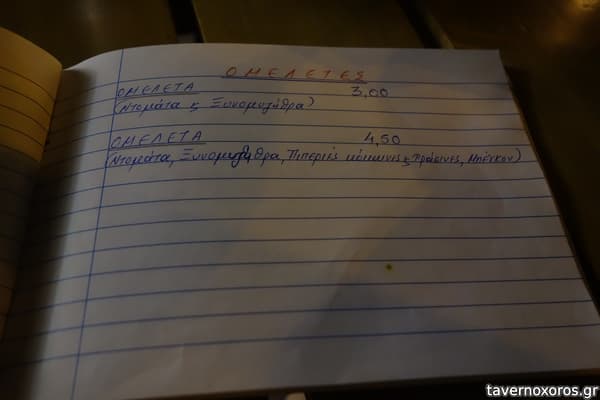 ΟΜΕΛΕΤΕΣ
ΟΜΕΛΕΤΑ 3,00
(Ντομάτα ς Ξυνομυζήθρα)
ΟΜΕΛΕΤΑ 4,50
(Ντομάτα, Ξυνομυζήθρα, Πιπεριές κόκκινες ς Πράσινες, Μπέικον)
tavernoxoros.gr